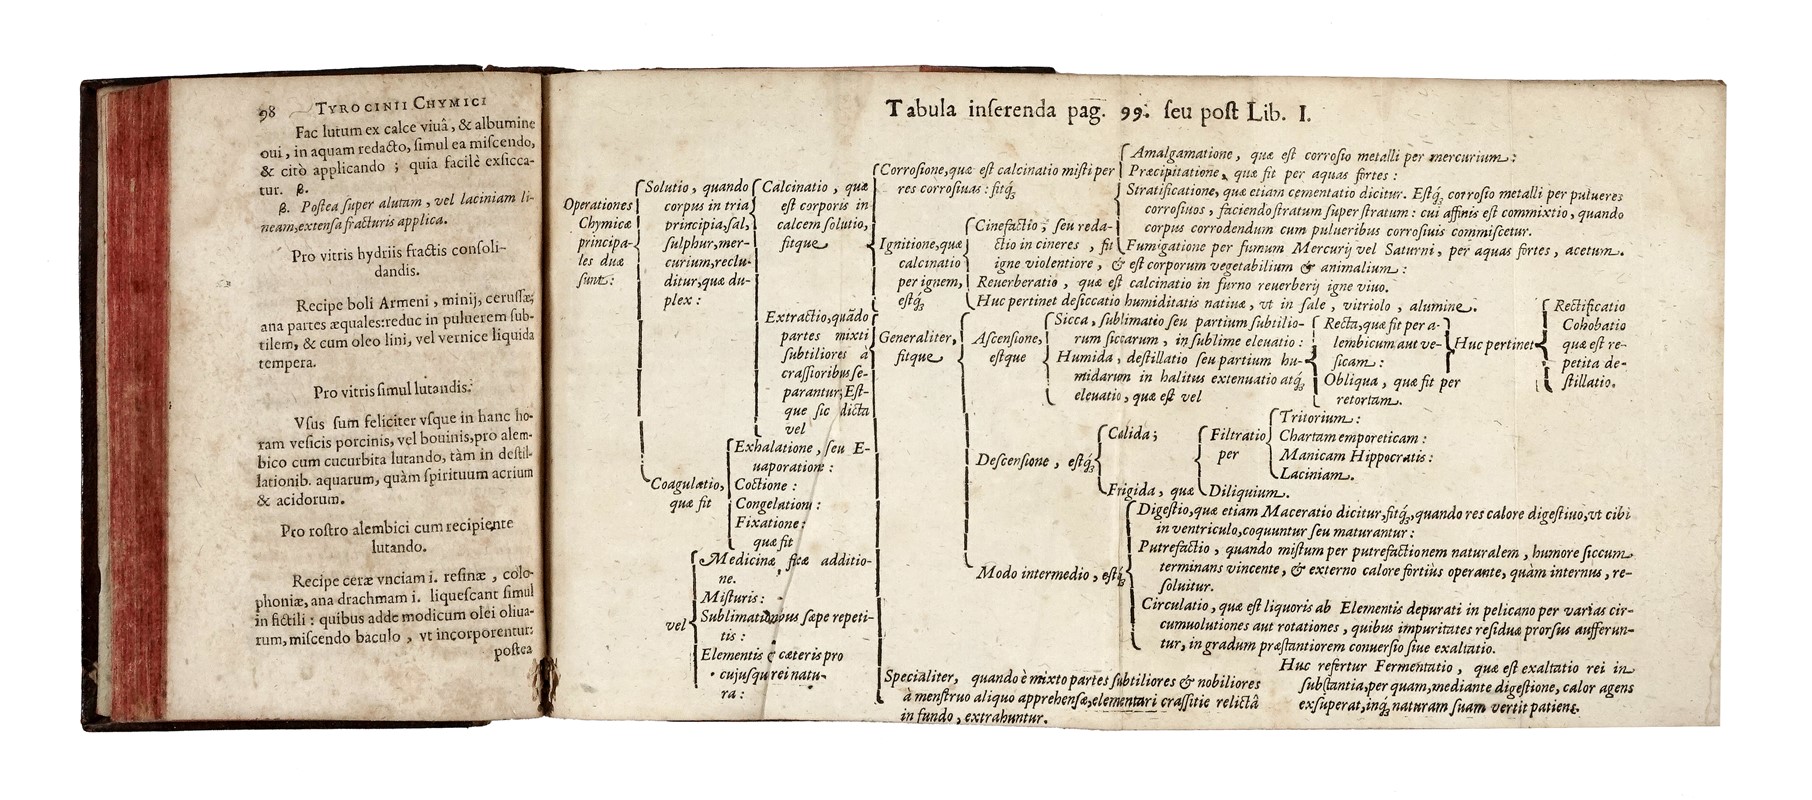 98 TYROCINII CHYMICI
Fac lutum ex calce viuâ, & albumine
oui, in aquam redacto, ſimul ea miſcendo,
& citò applicando ; quia facilè exſicca-
tur. β.
β. Poſtea ſuper alutam, vel laciniam li-
neam, extenſa fracturis applica.
Pro vitris hydriis fractis conſoli-
dandis.
Recipe boli Armeni, minij, ceruſſæ,
ana partes æquales: reduc in puluerem ſub-
tilem, & cum oleo lini, vel vernice liquida
tempera.
Pro vitris ſimul lutandis.
Vſus ſum feliciter vſque in hanc ho-
ram veſicis porcinis, vel bouinis, pro alem-
bico cum cucurbita lutando, tàm in deſtil-
lationib. aquarum, quàm ſpirituum acrium
& acidorum.
Pro roſtro alembici cum recipiente
lutando.
Recipe ceræ vnciam i. reſinæ, colo-
phoniæ, ana drachmam i. liqueſcant ſimul
in fictili : quibus adde modicum olei oliua-
rum, miſcendo baculo, vt incorporentur:
poſtea
Tabula inſerenda pag. 99. ſeu poſt Lib. I.
Operationes
Chymicæ
principa-
les duæ
ſunt:
Solutio, quando
corpus in tria
principia, ſal,
ſulphur, mer-
curium, reclu-
ditur, quæ du-
plex :
Calcinatio, quæ
eſt corporis in
calcem ſolutio,
fitque
Corroſione, quæ eſt calcinatio miſti per
res corroſiuas : fitq́ꝫ
Amalgamatione, quæ eſt corroſio metalli per mercurium :
Præcipitatione, quæ fit per aquas fortes :
Stratificatione, quæ etiam cementatio dicitur. Eſtq́ꝫ corroſio metalli per pulueres
corroſiuos, faciendo ſtratum ſuper ſtratum : cui affinis eſt commixtio, quando
corpus corrodendum cum pulueribus corroſiuis commiſcetur.
Fumigatione per fumum Mercurij vel Saturni, per aquas fortes, acetum.
Ignitione, quæ
calcinatio
per ignem,
eſtq́ꝫ
Cinefactio, ſeu reda-
ctio in cineres, fit
igne violentiore, & eſt corporum vegetabilium & animalium :
Reuerberatio, quæ eſt calcinatio in furno reuerberij igne viuo.
Huc pertinet deſiccatio humiditatis natiuæ, vt in ſale, vitriolo, alumine.
Extractio, quãdo
partes mixti
ſubtiliores à
craſſioribus ſe-
parantur, Eſt-
que ſic dicta
vel
Generaliter,
fitque
Aſcenſione,
eſtque
Sicca, ſublimatio ſeu partium ſubtilio-
rum ſiccarum, in ſublime eleuatio :
Humida, deſtillatio ſeu partium hu-
midarum in halitus extenuatio atq́ꝫ
eleuatio, quæ eſt vel
Recta, quæ fit per a-
lembicum aut ve-
ſicam :
Obliqua, quæ fit per
retortam.
Huc pertinet
Rectificatio
Cohobatio
quæ eſt re-
petita de-
ſtillatio.
Deſcenſione, eſtq́ꝫ
Calida;
Frigida, quæ
Filtratio
per
Tritorium :
Chartam emporeticam :
Manicam Hippocratis :
Laciniam.
Diliquium.
Modo intermedio, eſtq́ꝫ
Digeſtio, quæ etiam Maceratio dicitur, fitq́ꝫ, quando res calore digeſtiuo, vt cibi
in ventriculo, coquuntur ſeu maturantur :
Putrefactio, quando miſtum per putrefactionem naturalem, humore ſiccum
terminans vincente, & externo calore fortiùs operante, quàm internus, re-
ſoluitur.
Circulatio, quæ eſt liquoris ab Elementis depurati in pelicano per varias cir-
cumuolutiones aut rotationes, quibus impuritates reſiduæ prorſus aufferun-
tur, in gradum præſtantiorem conuerſio ſiue exaltatio.
Huc refertur Fermentatio, quæ eſt exaltatio rei in
ſubſtantia, per quam, mediante digeſtione, calor agens
exſuperat, inq́ꝫ naturam ſuam vertit patiens.
Specialiter, quando è mixto partes ſubtiliores & nobiliores
à menſtruo aliquo apprehenſæ, elementari craſſitie relictâ
in fundo, extrahuntur.
Coagulatio,
quæ fit
Exhalatione, ſeu E-
uaporatione :
Coctione :
Congelatione :
Fixatione :
quæ fit
vel
Medicinæ fixæ additio-
ne.
Miſturis :
Sublimationibus ſæpe repeti-
tis :
Elementis & cæteris pro
cujuſque rei natu-
ra :